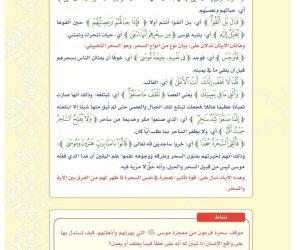 أي، حبالهم وعصيهم.
﴿قَالَ بَلْ أَلْقُوا﴾ أي، بل ألقوا أنتم أولا ﴿فَإِذَا حِبَالُهُمْ وَعِصِيُّهُمْ﴾ حين ألقوها
﴿يُخَيَّلُ إِلَيْهِ﴾ أي، يشبه لموسى ﴿مِن سِحْرِهِمْ أَنَّهَا تَسْعَى﴾ أي، حيات تتحرك وتمشي.
وهاتان الآيتان تدلان على: بيان نوع من أنواع السحر، وهو السحر التخييلي.
﴿فَأَوْجَسَ﴾ أي، فوجد ﴿فِي نَفْسِهِ خِيفَةً مُّوسَى﴾ أي، خوفًا أن يفتتن الناس بسحرهم
قبل أن يلقي ما في يمينه.
﴿قُلْنَا لَا تَخَفْ إِنَّكَ أَنتَ الْأَعْلَى﴾ أي، الغالب.
﴿وَأَلْقِ مَا فِي يَمِينِكَ﴾ يعني العصا ﴿تَلْقَفْ مَا صَنَعُوا﴾ أي، تبتلعه، وذلك أنها صارت
ثعبانًا عظيمًا هائلًا فجعلت تبتلع تلك الحبال والعصي حتى لم تبق منها شيئا إلا ابتلعته
﴿إِنَّمَا صَنَعُوا كَيْدُ سَاحِرٍ﴾ أي، الذي صنعوا مكر وخديعة من ساحر ﴿وَلَا يُفْلِحُ السَّاحِرُ
حَيْثُ أَتَى﴾ أي، ولا يظفر الساحر بما طلب أيًا كان.
﴿فَأُلْقِيَ السَّحَرَةُ سُجَّدًا﴾ أي، خروا ساجدين لله تعالى ﴿قَالُوا آمَنَّا بِرَبِّ هَارُونَ وَمُوسَى﴾
وذلك أنهم لخبرتهم بفنون السحر وطرقه ووجوهه علموا علم اليقين أن هذا الذي فعله
موسى ليس من قبيل السحر والحيل، وأنه حق لا مرية فيه.
وهذه الآيات تدل على: قوة تأثير المعجزة في نفس السحرة لما ظهر لهم من الفرق بين الآية
والسحر.
نشاط
موقف سحرة فرعون من معجزة موسى ﷺ التي بهرتهم وأذهلتهم، كيف تستدل بها
على واقع الإنسان إذا تبين له أنه على خطأ فيما يعتقد أو يعمل؟